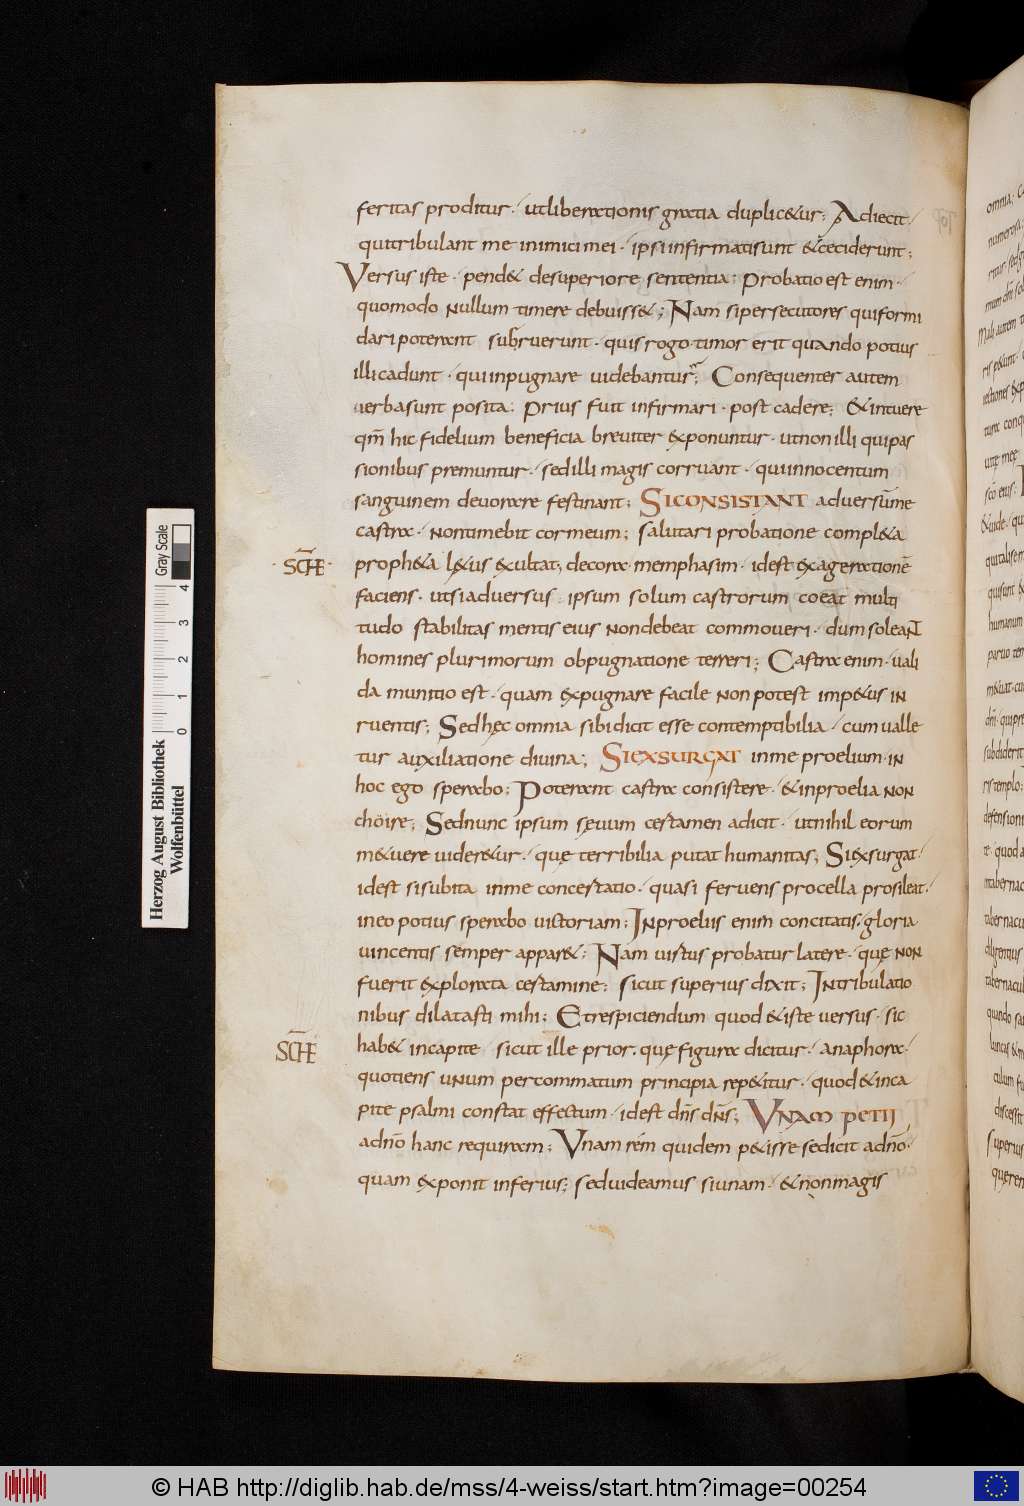 feritas proditur · ut liberationis gratia duplic&ur : Adiecit ·
qui tribulant me inimici mei · ipsi infirmati sunt & ceciderunt ;
Versus iste · pend& de superiore sententia : Probatio est enim ·
quomodo nullum timere debuiss& ; Nam si persecutores qui formi
dari poterant subruerunt · quis rogo timor erit quando potius
illi cadunt · qui inpugnare uidebantur ; Consequenter autem
uerba sunt posita : Prius fuit infirmari · post cadere ; & intuere
qm̄ hic fidelium beneficia breuiter exponuntur · ut non illi qui pas
sionibus premuntur · sed illi magis corruant · qui innocentum
sanguinem deuorare festinant ; SI CONSISTANT aduersum me
castra · non timebit cor meum ; salutari probatione compl&a
SCHE proph&a l&us exultat, decora memphasim · id est exagerationē
faciens · ut si aduersus ipsum solum castrorum coeat multi
tudo stabilitas mentis eius non debeat commoueri · dum soleant
homines plurimorum obpugnatione terreri ; Castra enim · uali
da munitio est · quam expugnare facile non potest imp&us in
ruentis ; Sed hęc omnia sibi dicit esse contemptibilia · cum ualle
tur auxiliatione diuina ; SI EXSURGAT in me proelium · in
hoc ego sperabo : Poterant castra consistere · & in proelia non
choire ; Sed nunc ipsum sęuum certamen adicit · ut nihil eorum
m&uere uider&ur · quę terribilia putat humanitas ; Si exsurgat ·
id est si subita in me concertatio · quasi feruens procella prosileat ·
in eo potius sperabo uictoriam : In proeliis enim concitatis · gloria
uincentis semper appar& : Nam uirtus probatur latere · quę non
fuerit explorata certamine : sicut superius dixit ; In tribulatio
nibus dilatasti mihi : Et respiciendum quod & iste uersus · sic
SCHE hab& in capite sicut ille prior · quę figura dicitur · anaphora ·
quotiens unum per commatum principia rep&itur · quod & in ca
pite psalmi constat effectum · id est dn̄s dn̄s ; UNAM PETII
a dn̄o hanc requiram ; Unam rem quidem p&isse se dicit a dn̄o ·
quam exponit inferius ; sed uideamus si unam · & non magis
Herzog August Bibliothek
Wolfenbüttel
0 1 2 3 4
Gray Scale
© HAB http://diglib.hab.de/mss/4-weiss/start.htm?image=00254